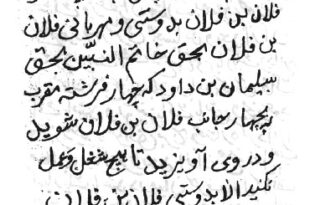 فلان بن فلان بدوستی و مهربانی فلان
بن فلان بحق خاتم النبیّین بحق
سلیمان بن داود که چهار فرشته مقرب
بچهار جانب فلان بن فلان شوید
و در وی آویزید تا هیچ شغل و عمل
نکنید الا بدوستی فلان بن فلان